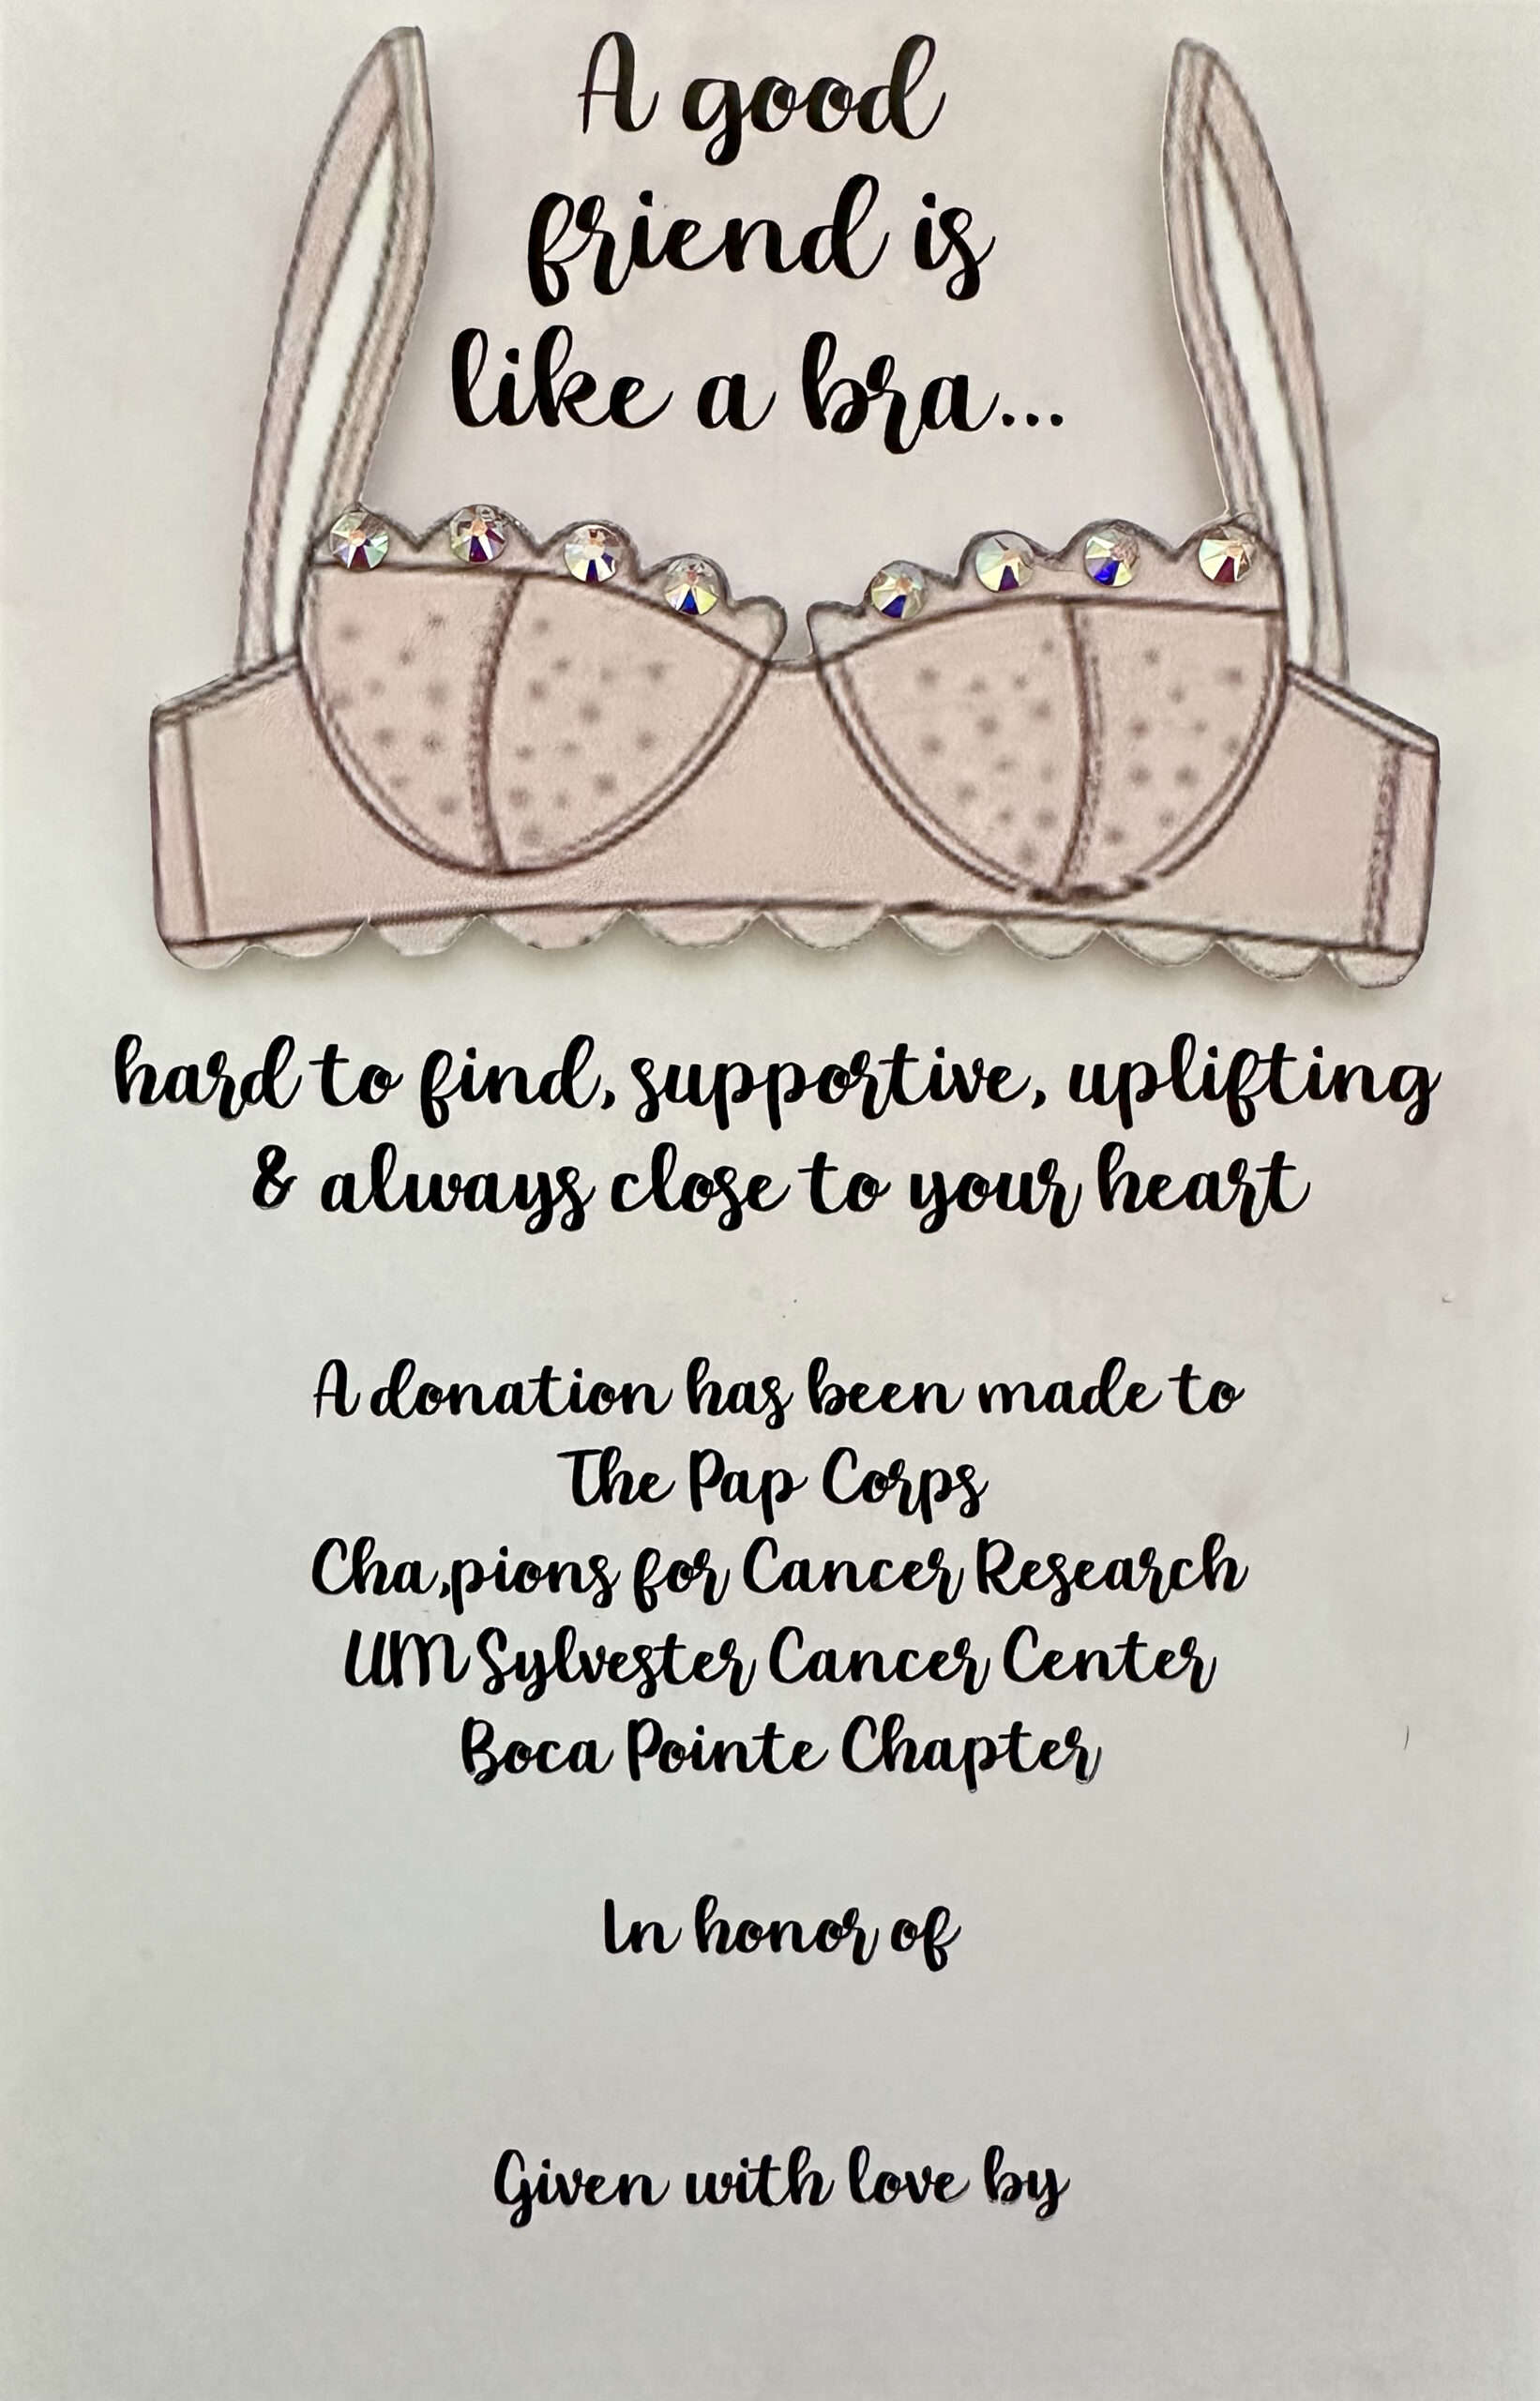 A good
friend is
like a bra...
hard to find, supportive, uplifting
& always close to your heart
A donation has been made to
The Pap Corps
Cha,pions for Cancer Research
UM Sylvester Cancer Center
Boca Pointe Chapter
In honor of
Given with love by